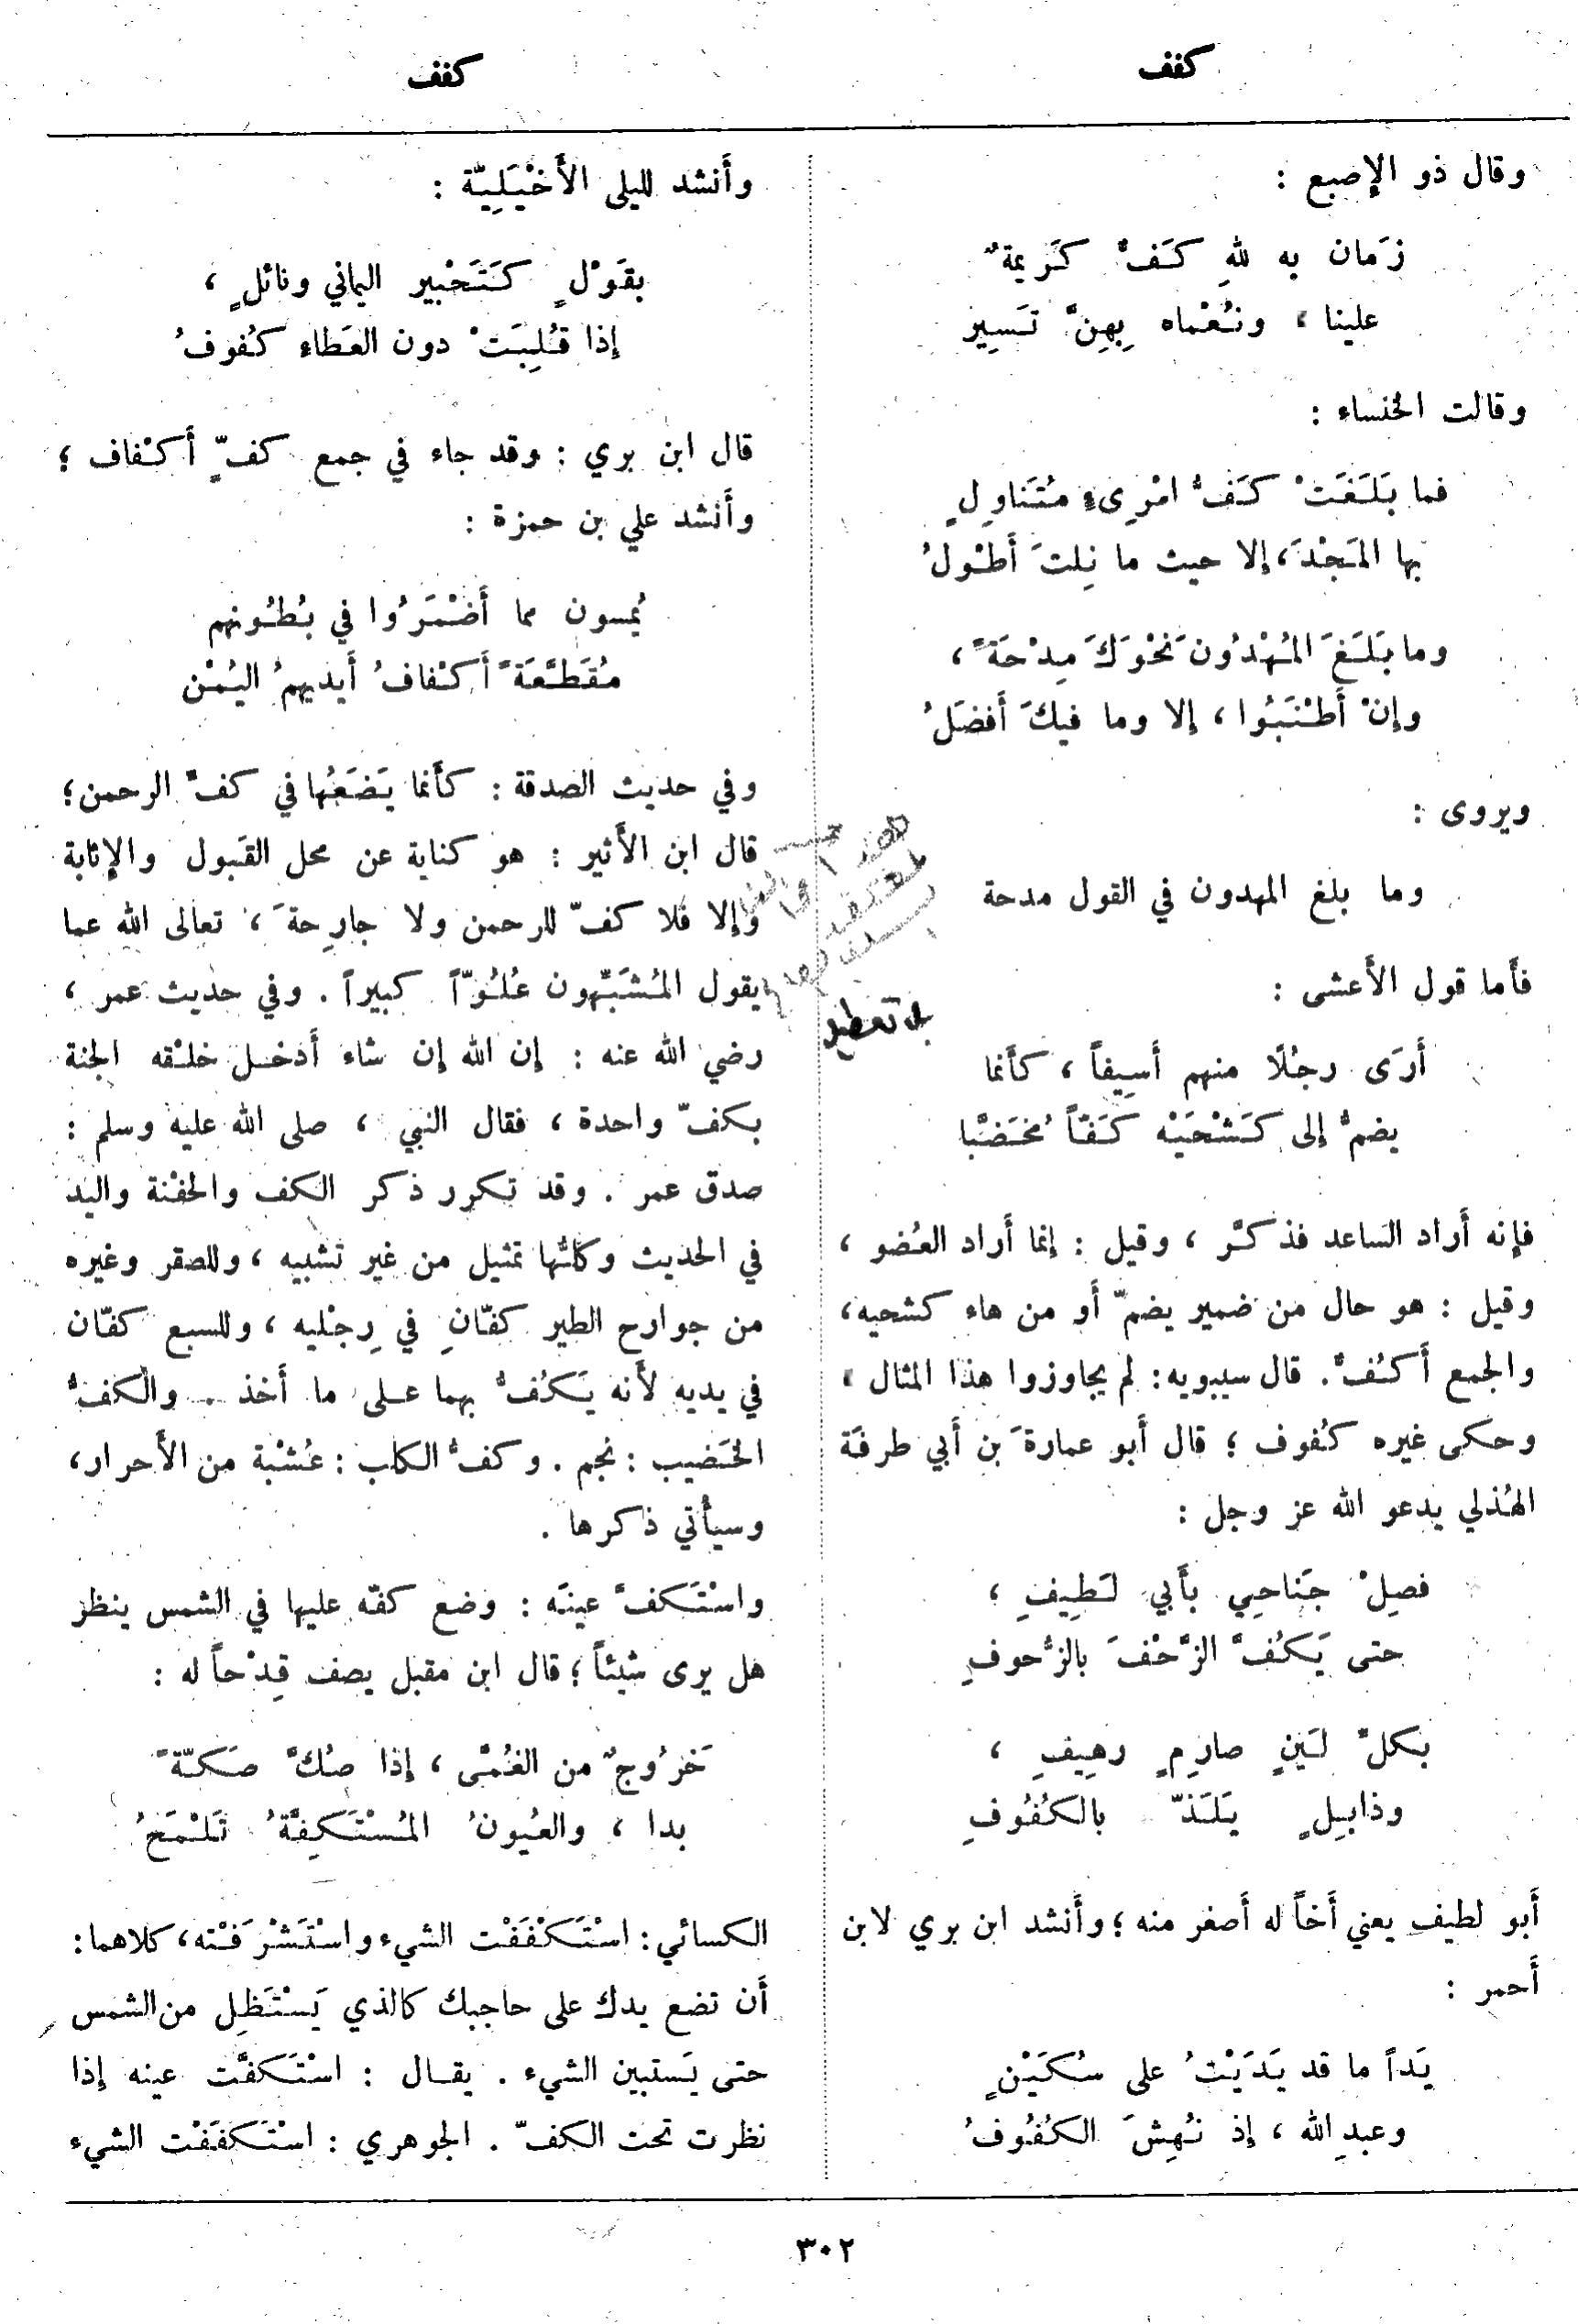 كفف
كفف
وقال ذو الإصبع :
زَمان به للهِ كَفٌّ كَريمةٌ
علينا ، ونُعْماه بِهِنَّ تَسِير
وقالت الخنساء :
فما بَلَغَتْ كَفُّ امْرِىءٍ مُتَناوِلٍ
بها المَجْدَ، إلا حيث ما نِلتَ أَطْولُ
وما بَلَغَ المُهْدُون نَحْوَكَ مِدْحَةً ،
وإنْ أَطْنَبُوا ، إلا وما فيكَ أَفضَلُ
ويروى :
وما بلغ المهدون في القول مدحة
فأَما قول الأَعشى :
أَرَى رجُلًا منهم أَسِيفاً ، كأَنما
يضمُّ إلى كَشْحَيْه كَفّاً مُخَضَّبا
فإنه أَراد الساعد فذكَّر ، وقيل : إنما أَراد العُضو ،
وقيل : هو حال من ضمير يضمّ أَو من هاء كشحيه،
والجمع أَكُفٌّ. قال سيبويه: لم يجاوزوا هذا المثال ،
وحكى غيره كُفوف ؛ قال أَبو عمارةَ بن أَبي طرفَة
الهُذلي يدعو الله عز وجل :
فصِلْ جَناحِي بأَبي لَطِيفِ ،
حتى يَكُفَّ الزَّحْفَ بالزُّحوفِ
بكلِّ لَينٍ صارِمٍ رهِيفِ ،
وذابِلٍ يَلَذّ بالكُفُوفِ
أَبو لطيف يعني أَخاً له أَصغر منه ؛ وأَنشد ابن بري لابن
أَحمر :
يَداً ما قد يَدَيْتُ على سُكَيْنٍ
وعبدِ الله ، إذ نُهِشَ الكُفُوفُ
وأَنشد لليلى الأَخْيَلِيّة :
بقَوْلٍ كَتَحْبير اليماني ونائلٍ ،
إذا قُلِبَتْ دون العَطاء كُفوفُ
قال ابن بري : وقد جاء في جمع كفٍّ أَكْفاف ؛
وأَنشد علي بن حمزة :
يُمسون مما أَضْمَرُوا في بُطُونهم
مُقَطَّعَةً أَكْفافُ أَيديهمُ اليُمْن
وفي حديث الصدقة : كأَنما يَضَعُها في كفِّ الرحمن؛
قال ابن الأَثير : هو كناية عن محل القَبول والإثابة
وإلا فلا كفّ للرحمن ولا جارِحةَ ، تعالى الله عما
يقول المُشَبِّهون عُلُوّاً كبيراً . وفي حديث عمر ،
رضي الله عنه : إن الله إن شاء أَدخل خلْقه الجنة
بكفّ واحدة ، فقال النبي ، صلى الله عليه وسلم :
صدق عمر . وقد تكرر ذكر الكف والحفْنة واليد
في الحديث وكلُّها تمثيل من غير تشبيه ، وللصقر وغيره
من جوارح الطير كفّانِ في رِجْليه ، وللسبع كفّان
في يديه لأَنه يَكُفُّ بهما على ما أَخذ . والكفُّ
الخَضيب : نجم . وكفُّ الكلب : عُشْبة من الأَحرار،
وسيأْتي ذكرها .
واسْتَكفَّ عينَه : وضع كفّه عليها في الشمس ينظر
هل يرى شيئاً ؛ قال ابن مقبل يصف قِدْحاً له :
خَرُوجٌ من الغُمَّى ، إذا صُكَّ صَكّةً
بدا ، والعُيونُ المُسْتَكِفَّةُ تَلْمَحُ
الكسائي : اسْتَكْفَفْت الشيء واسْتَشْرَفْته، كلاهما:
أَن تضع يدك على حاجبك كالذي يَسْتَظِل من الشمس
حتى يَستبين الشيء . يقال : اسْتَكفَّت عينه إذا
نظرت تحت الكفّ . الجوهري : اسْتَكفَفْت الشيء
٣٠٢